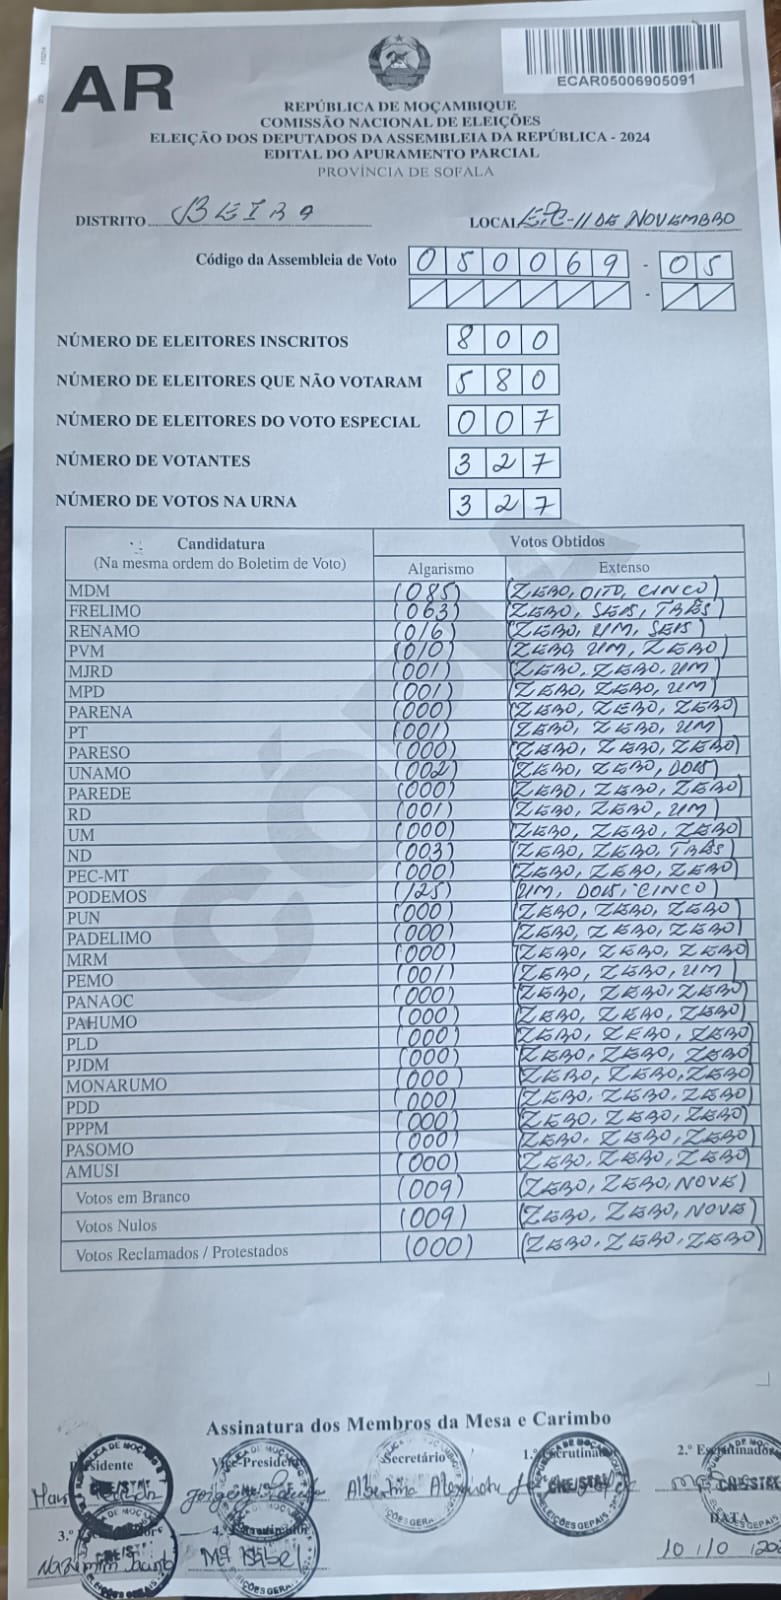 AR
ECAR05006905091
REPÚBLICA DE MOÇAMBIQUE
COMISSÃO NACIONAL DE ELEIÇÕES
ELEIÇÃO DOS DEPUTADOS DA ASSEMBLEIA DA REPÚBLICA - 2024
EDITAL DO APURAMENTO PARCIAL
PROVÍNCIA DE SOFALA
DISTRITO BEIRA LOCAL EPC-11 DE NOVEMBRO
Código da Assembleia de Voto 050069 - 05
NÚMERO DE ELEITORES INSCRITOS 800
NÚMERO DE ELEITORES QUE NÃO VOTARAM 580
NÚMERO DE ELEITORES DO VOTO ESPECIAL 007
NÚMERO DE VOTANTES 327
NÚMERO DE VOTOS NA URNA 327
Candidatura Votos Obtidos
(Na mesma ordem do Boletim de Voto) Algarismo Extenso
MDM (085) (ZERO, OITO, CINCO)
FRELIMO (063) (ZERO, SEIS, TRÊS)
RENAMO (016) (ZERO, UM, SEIS)
PVM (010) (ZERO, UM, ZERO)
MJRD (001) (ZERO, ZERO, UM)
MPD (001) (ZERO, ZERO, UM)
PARENA (000) (ZERO, ZERO, ZERO)
PT (001) (ZERO, ZERO, UM)
PARESO (000) (ZERO, ZERO, ZERO)
UNAMO (002) (ZERO, ZERO, DOIS)
PAREDE (000) (ZERO, ZERO, ZERO)
RD (001) (ZERO, ZERO, UM)
UM (000) (ZERO, ZERO, ZERO)
ND (003) (ZERO, ZERO, TRÊS)
PEC-MT (000) (ZERO, ZERO, ZERO)
PODEMOS (125) (UM, DOIS, CINCO)
PUN (000) (ZERO, ZERO, ZERO)
PADELIMO (000) (ZERO, ZERO, ZERO)
MRM (000) (ZERO, ZERO, ZERO)
PEMO (001) (ZERO, ZERO, UM)
PANAOC (000) (ZERO, ZERO, ZERO)
PAHUMO (000) (ZERO, ZERO, ZERO)
PLD (000) (ZERO, ZERO, ZERO)
PJDM (000) (ZERO, ZERO, ZERO)
MONARUMO (000) (ZERO, ZERO, ZERO)
PDD (000) (ZERO, ZERO, ZERO)
PPPM (000) (ZERO, ZERO, ZERO)
PASOMO (000) (ZERO, ZERO, ZERO)
AMUSI (000) (ZERO, ZERO, ZERO)
Votos em Branco (009) (ZERO, ZERO, NOVE)
Votos Nulos (009) (ZERO, ZERO, NOVE)
Votos Reclamados / Protestados (000) (ZERO, ZERO, ZERO)
CÓPIA
Assinatura dos Membros da Mesa e Carimbo
Presidente Vice-Presidente Secretário 1.º Escrutinador 2.º Escrutinador
Albertina
3.º 4.º DATA
Mª Isabel 10 / 10